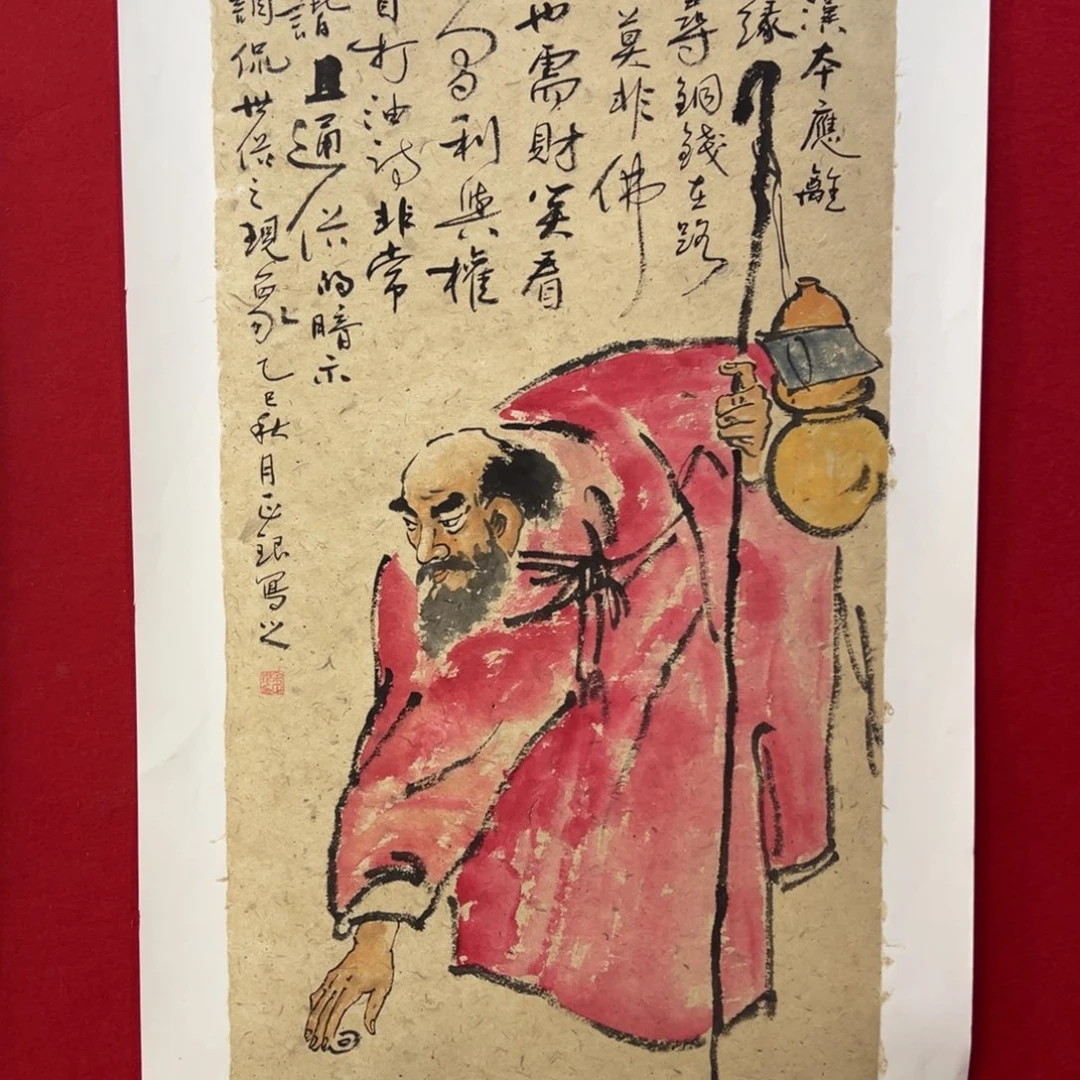 漢本應離
緣
尋銅錢在路
莫非佛
也需財笑看
為利與權
打油詩非常
諧且通俗的暗示
調侃世俗之現象乙巳秋月正銀寫之